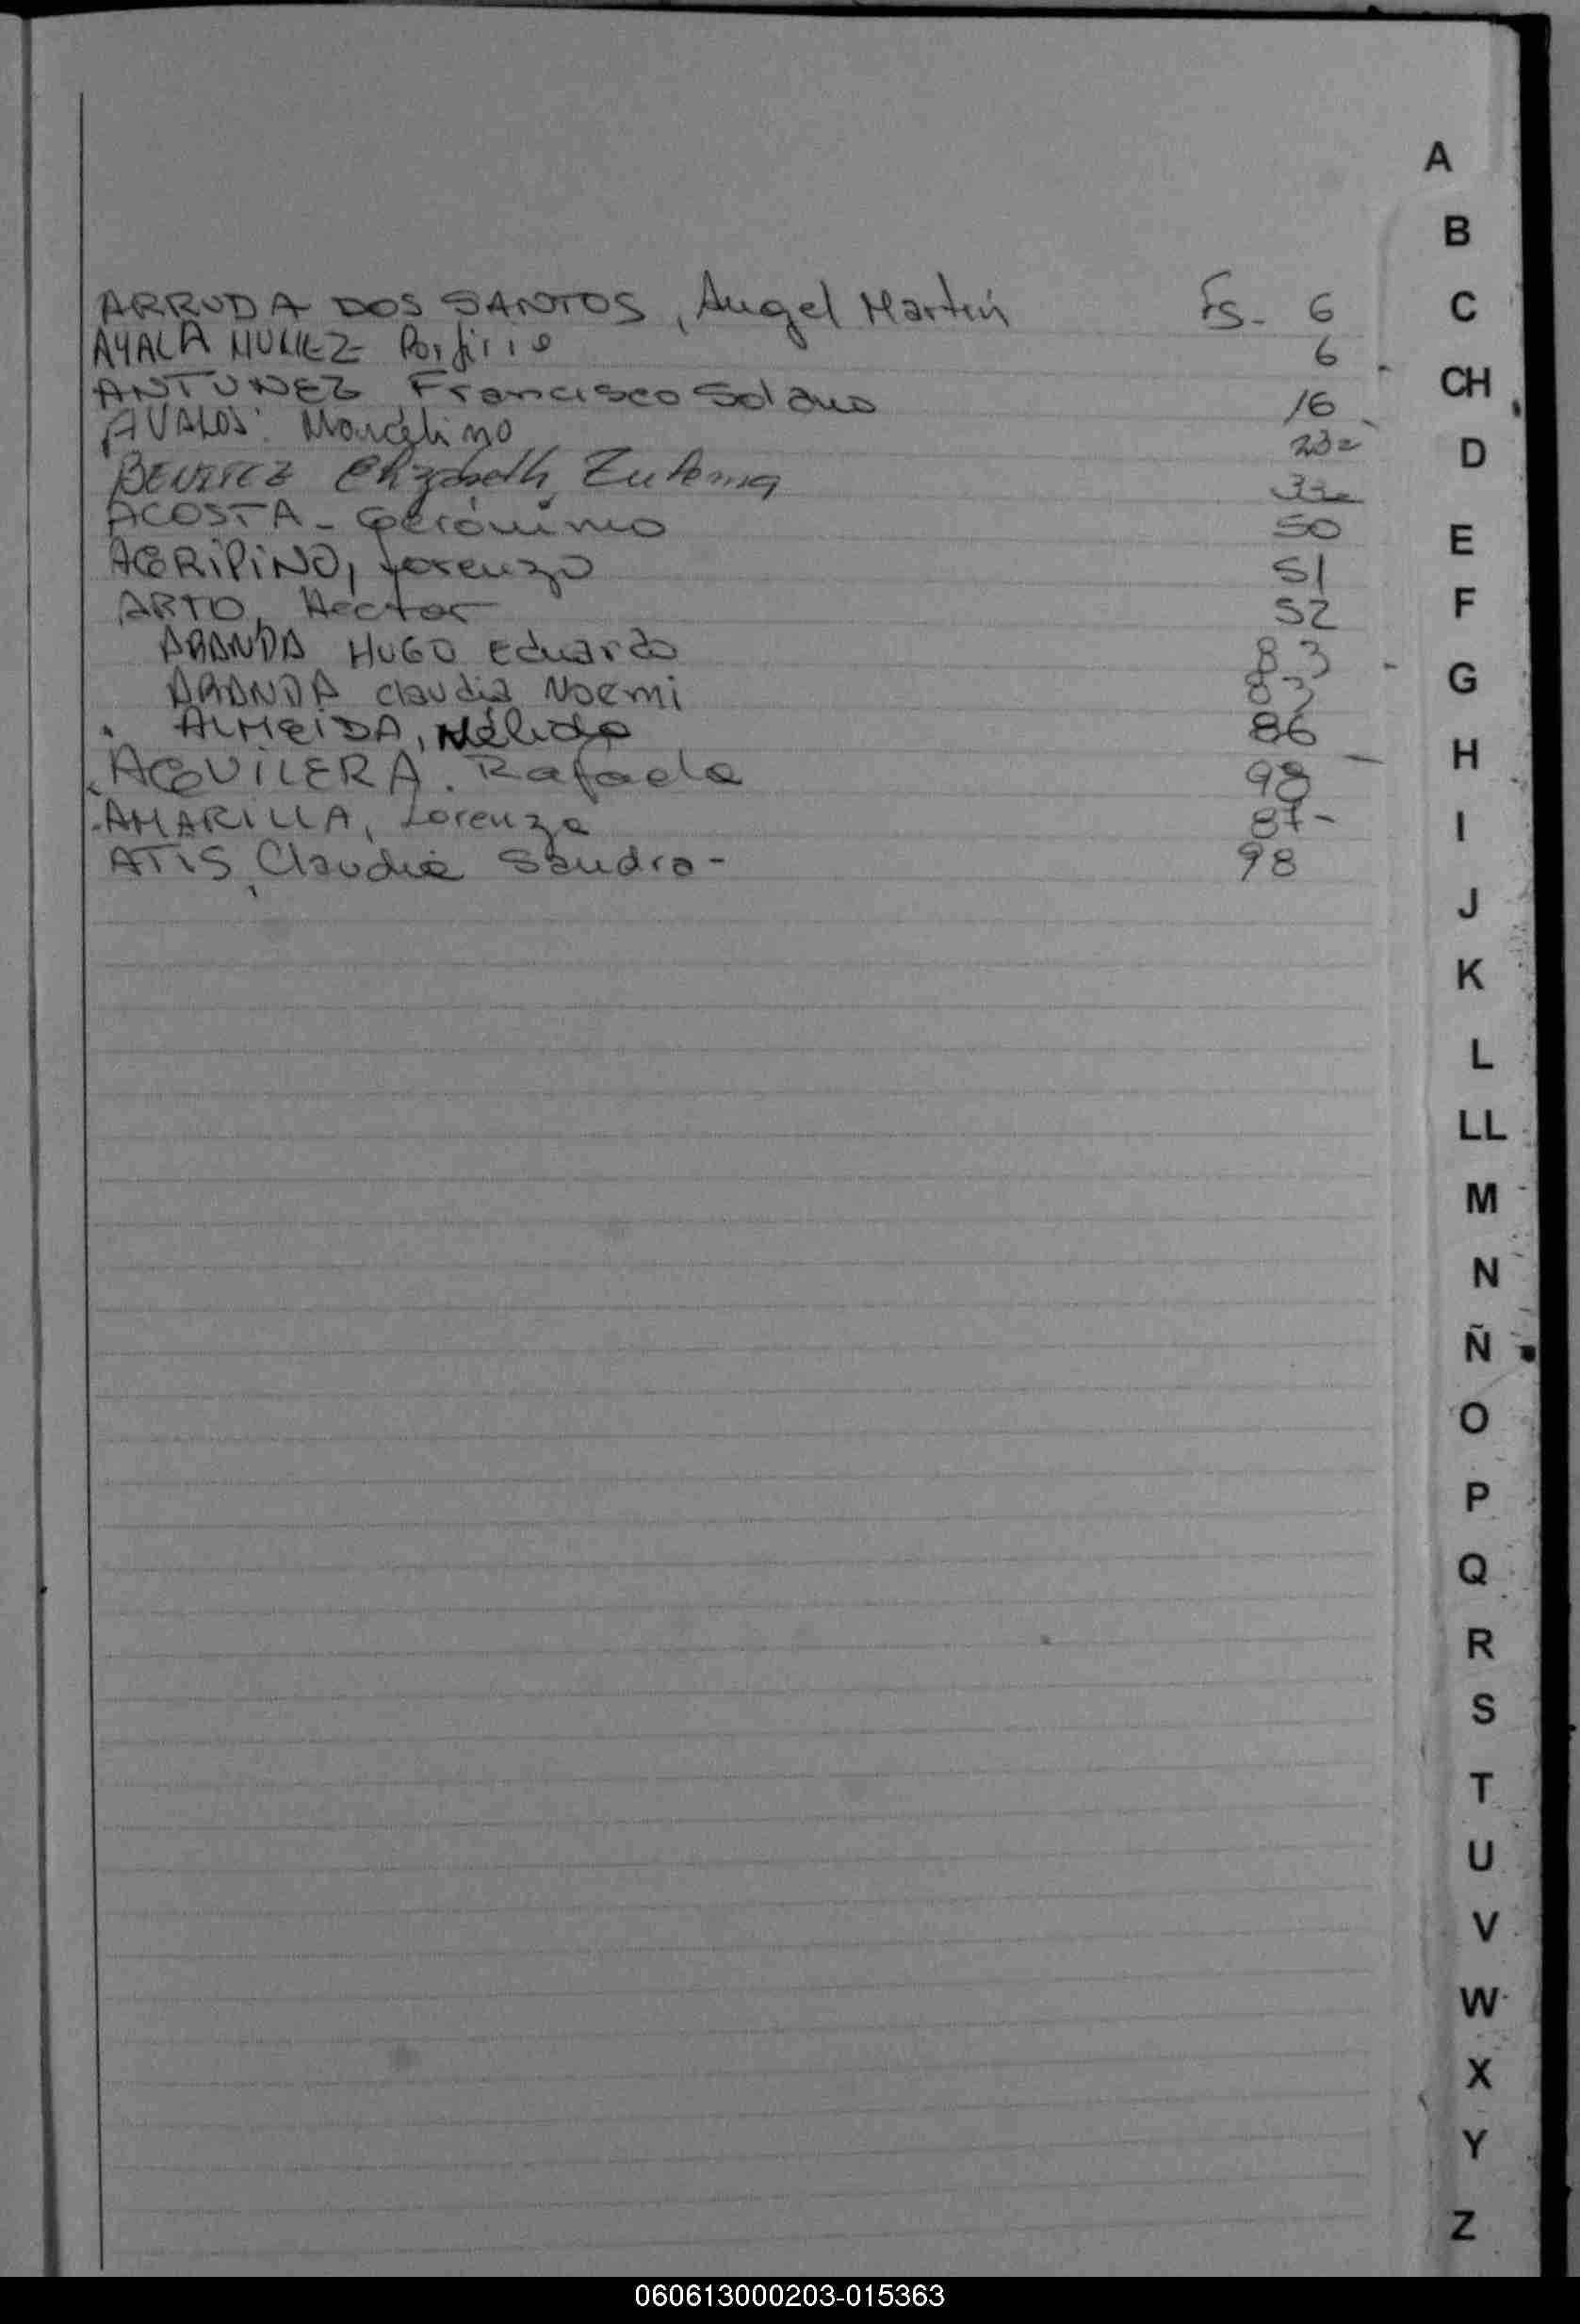 ARRUDA DOS SANTOS, Angel Martín Fs. 6
AYALA NUÑEZ Porfirio 6
ANTUNEZ Francisco Solano 16
AVALOS: Marcelino 23=
BENITEZ Elizabeth Zulema 33=
ACOSTA - Gerónimo 50
AGRIPINO, Lorenzo 51
ARTO, Hector 52
ARANDA HUGO Eduardo 83
ARANDA Claudia Noemi 83
ALMEIDA, Nélida 86
AGUILERA. Rafaela 98
AMARILLA, Lorenza 87-
ATIS, Claudia Sandra - 98
A
B
C
CH
D
E
F
G
H
I
J
K
L
LL
M
N
Ñ
O
P
Q
R
S
T
U
V
W
X
Y
Z
060613000203-015363